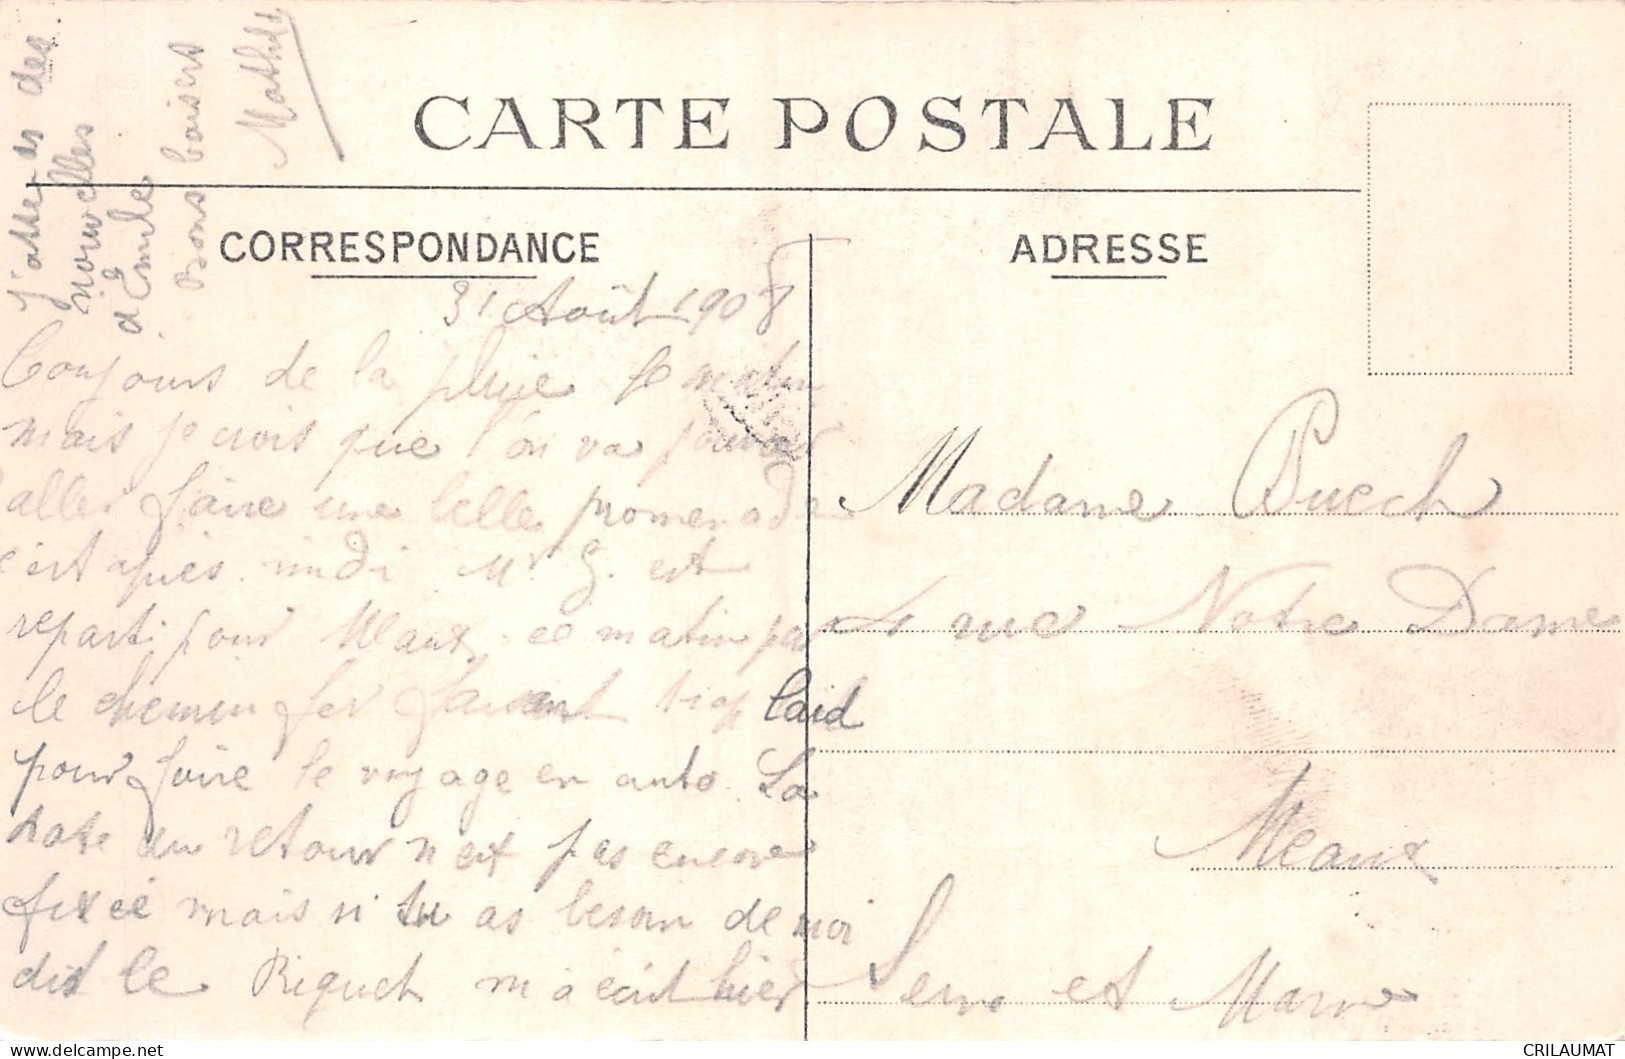 CARTE POSTALE
CORRESPONDANCE
ADRESSE
31 Août 1908
Toujours de la pluie le matin
mais je crois que l'on va pouvoir
aller faire une belle promenade
c'est après midi Mr G. est
reparti pour Meaux ce matin par
le chemin fer faisant trop laid
pour faire le voyage en auto. La
date du retour n'est pas encore
fixée mais si tu as besoin de moi
dis le Riquet m'a écrit hier
J'attends des
nouvelles
d'Emile
Bons baisers
Mathilde
Madame Puech
4 rue Notre Dame
Meaux
Seine et Marne
CRILAUMAT